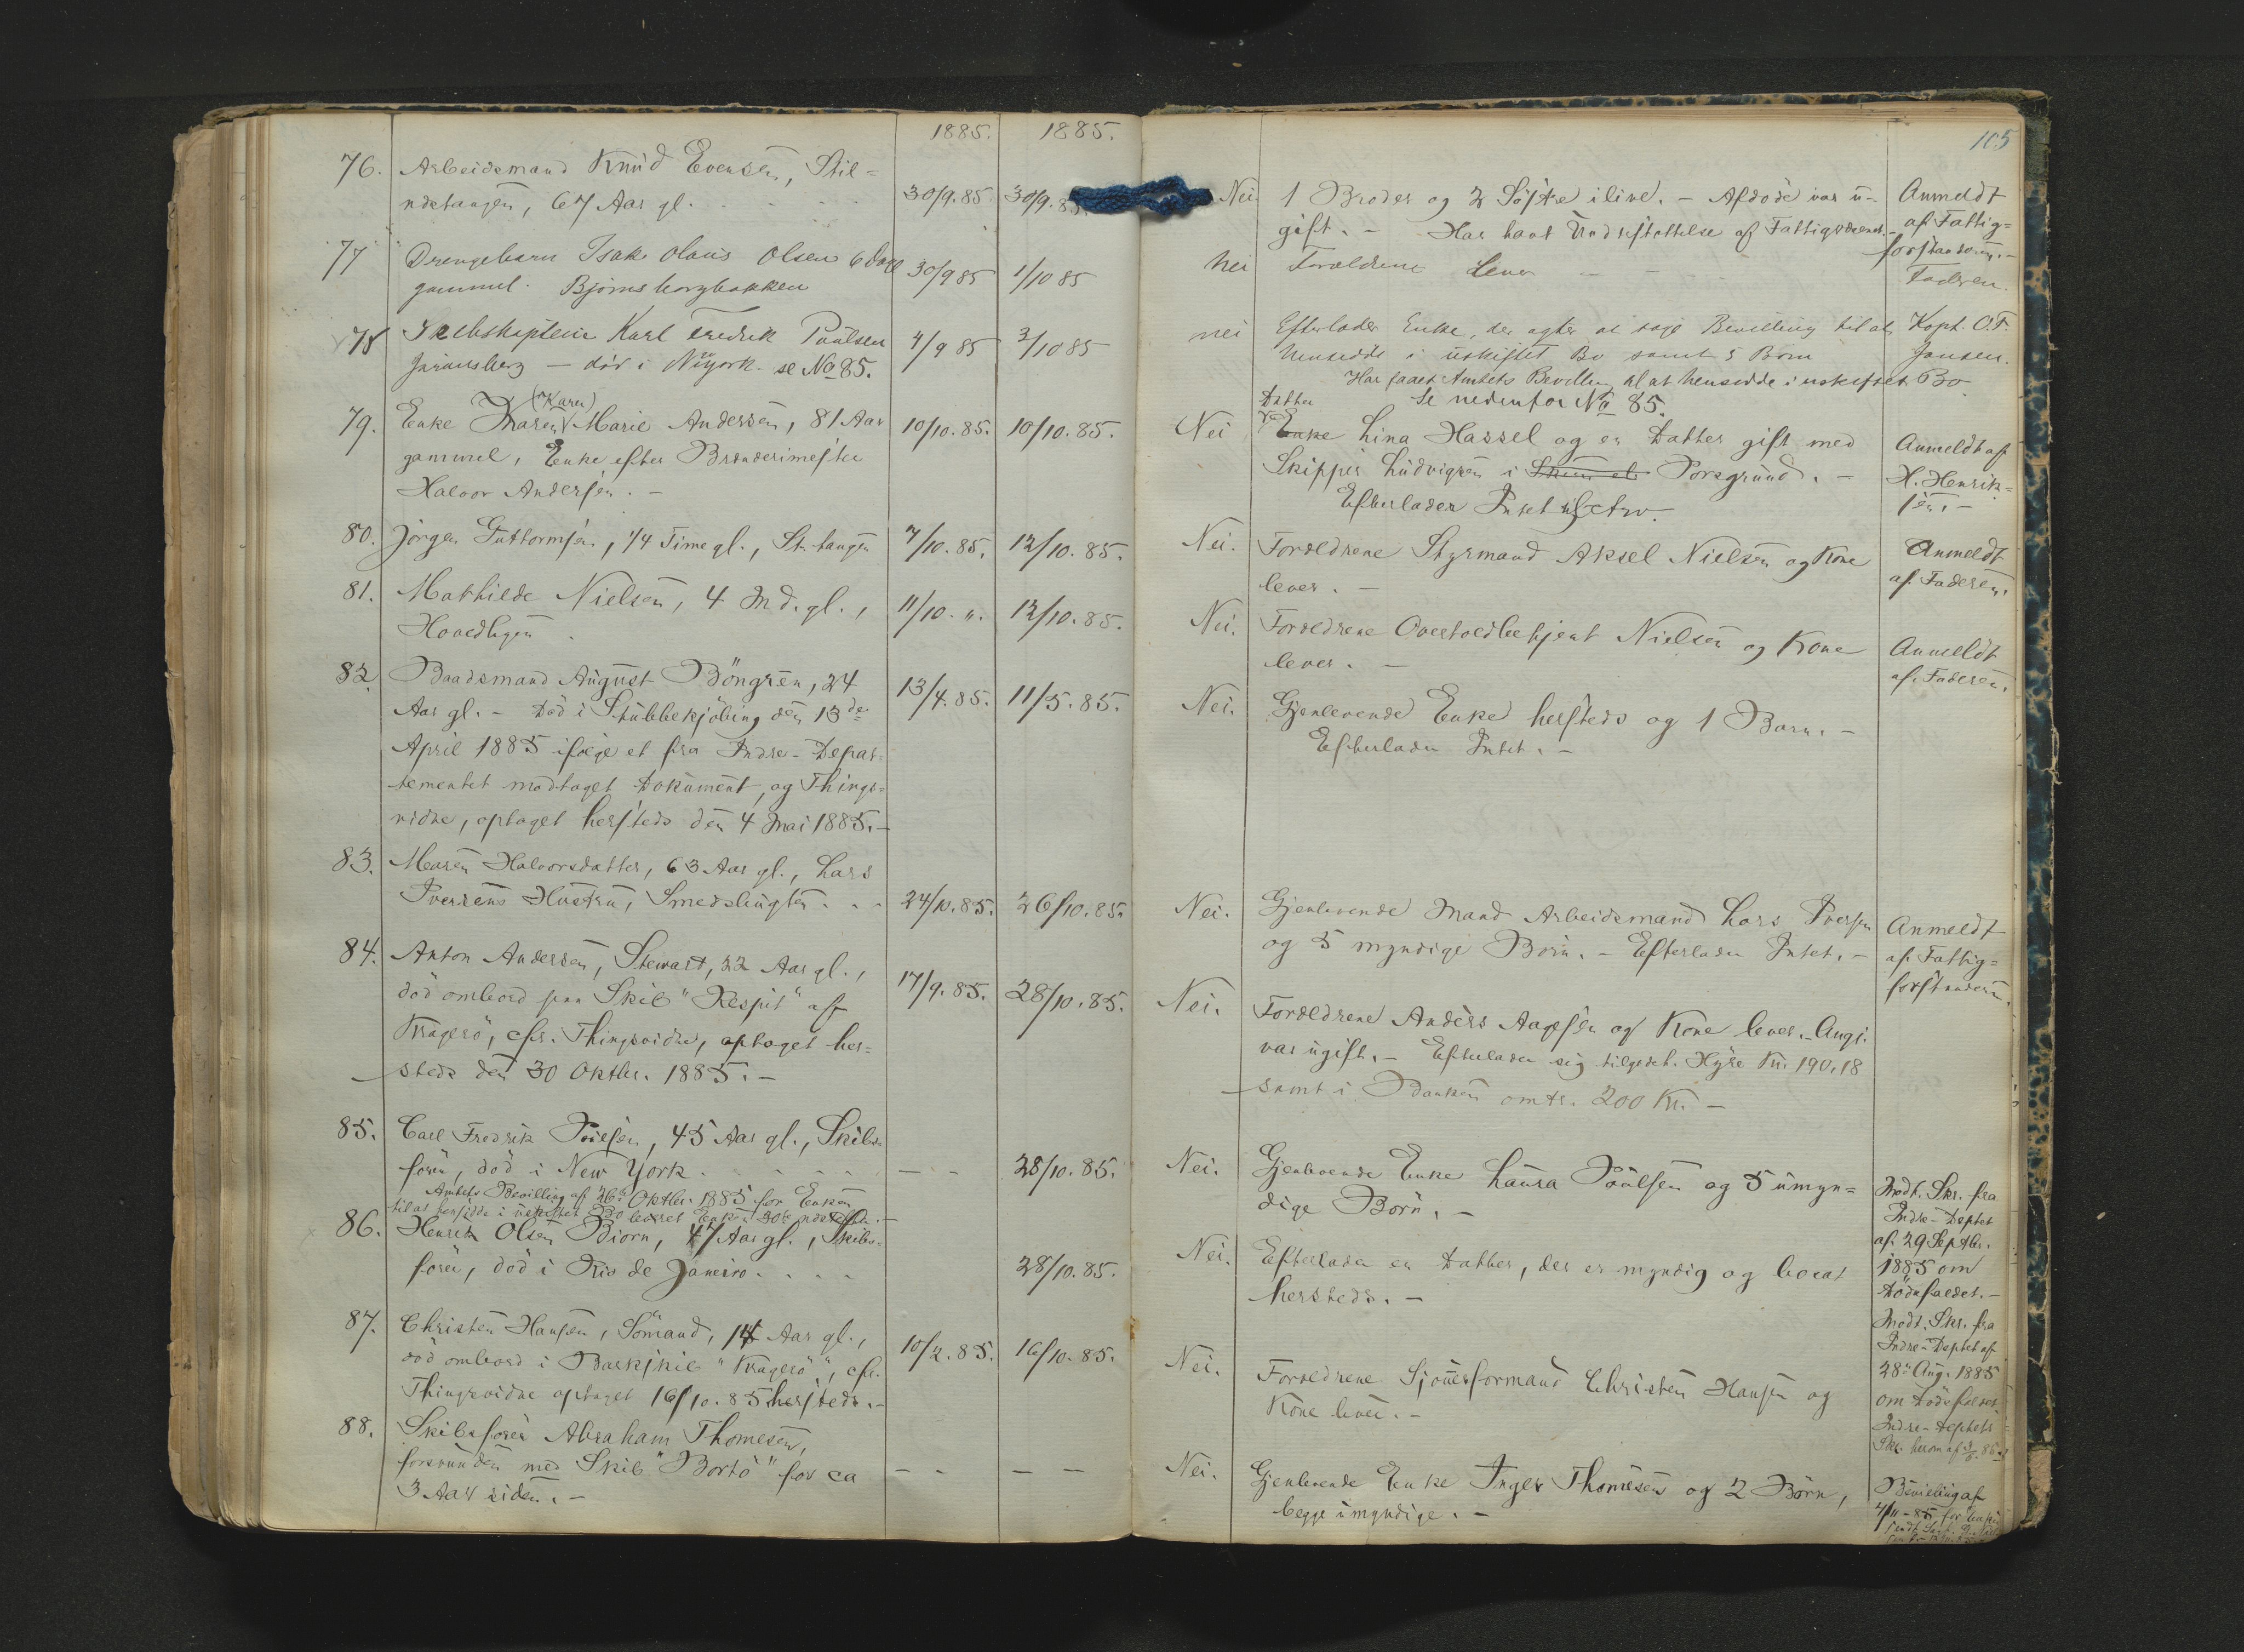 1885. 1885.
76. Arbeidsmand Knud Evensen, Stil=
ndstangen, 67 Aar gl. 30/9.85 30/9.85
77 Drengebarn Isak Olaus Olsen 6 Dage
gammel. Bjørnsborgbakken 30/9 85 1/10 85
78 Skibskaptein Karl Fredrik Poulsen
— død i Nüyork. se No 85. 4/9 85 3/10 85
79. Enke Maren (Karen) Marie Andersen, 81 Aar
gammel, Enke efter Brænderimester
Halvor Andersen. — 10/10.85. 10/10.85.
80. Jørgen Guttormsen, 1/4 Time gl., St.tangen 7/10.85. 12/10.85.
81. Mathilde Nielsen, 4 Md. gl., 11/10. ". 12/10.85.
Hovedbyen.
82. Baadsmand August Böngren, 24
Aar gl. – Død i Stubbekjøbing den 13de
April 1885 ifølge et fra Indre-Depar=
tementet modtaget Dokument, og Things=
vidne, optaget hersteds den 4 Mai 1885.–
13/4.85. 11/5.85.
83. Maren Halvorsdatter, 63 Aar gl., Lars
Iversens Hustru, Smedsbugten. . . 24/10.85. 26/10.85.
84. Anton Andersen, Stewart, 22 Aar gl.,
død ombord paa Skib "Respit" af
Kragerø, cfr. Thingsvidne, optaget her=
steds den 30 Oktbr. 1885. –
17/9.85. 28/10.85.
85. Carl Fredrik Poulsen, 45 Aar gl., Skibs
fører, død i New York. — – 28/10.85.
Amtets Bevilling af 26de Oktbr. 1885 for Enken
til at hensidde i uskiftet Bo leveret Enken
86. Henrik Olsen Biørn, 47 Aar gl., Skibs=
fører, død i Rio de Janeiro. . . . 28/10.85.
87. Christen Hansen, Sømand, 14 Aar gl.,
død ombord i Barkskib "Kragerø", cfr.
Thingsvidne optaget 16/10.85 hersteds. –
10/2.85. 16/10.85.
88. Skibsfører Abraham Thomesen,
forsvunden med Skib "Bortø" for ca
3 Aar siden. –
– – — —
105
Nei 1 Broder og 2 Søstre ilive. – Afdøde var u-
gift. – Har havt Understøttelse af Fattigvæsenet. –
Anmeldt
af Fattig=
forstanderen. –
Nei Forældrene lever –
Faderen.
nei Efterlader Enke, der agter at søge Bevilling til at
hensidde i uskiftet Bo samt 5 Børn
Har faaet Amtets Bevilling til at hensidde i uskiftet Bo
Se nedenfor No 85.
Kapt. O. F.
Jansen.
Nei Datter
Enke Lina Hassel og en Datter gift med
Skipper Ludvigsen i Porsgrund. –
Efterlader Intet
Anmeldt af
H. Henrik=
sen. –
Nei. Forældrene Styrmand Aksel Nielsen og Kone
lever. –
Anmeldt
af Faderen.
Nei. Forældrene Overtoldbetjent Nielsen og Kone
lever. –
Anmeldt
af Faderen.
Nei. Gjenlevende Enke hersteds og 1 Barn. –
Efterlader Intet. –
Nei. Gjenlevende Mand Arbeidsmand Lars Iversen
og 5 myndige Børn. – Efterlader Intet. –
Anmeldt
af Fattig=
forstanderen.
Nei. Forældrene Anders Aagesen og Kone lever. –
var ugift. – Efterlader sig tilgodeh. Hyre Kr. 190,18
samt i Banken omtr. 200 Kr. –
Nei. Gjenlevende Enke Laura Poulsen og 5 umyn=
dige Børn. –
Modt. Skr. fra
Indre-Deptet
af 29 Septbr.
1885 om
Dødsfaldet. –
Nei. Efterlader en Datter, der er myndig og bosat
hersteds. –
Modt. Skr. fra
Indre-Deptet af
28. Aug. 1885
om Dødsfaldet.
Nei. Forældrene Sjouerformand Christen Hansen og
Kone lever. –
Indre-Deptets
Skr. herom af
Nei. Gjenlevende Enke Inger Thomesen og 2 Børn,
begge umyndige. –
Bevilling af